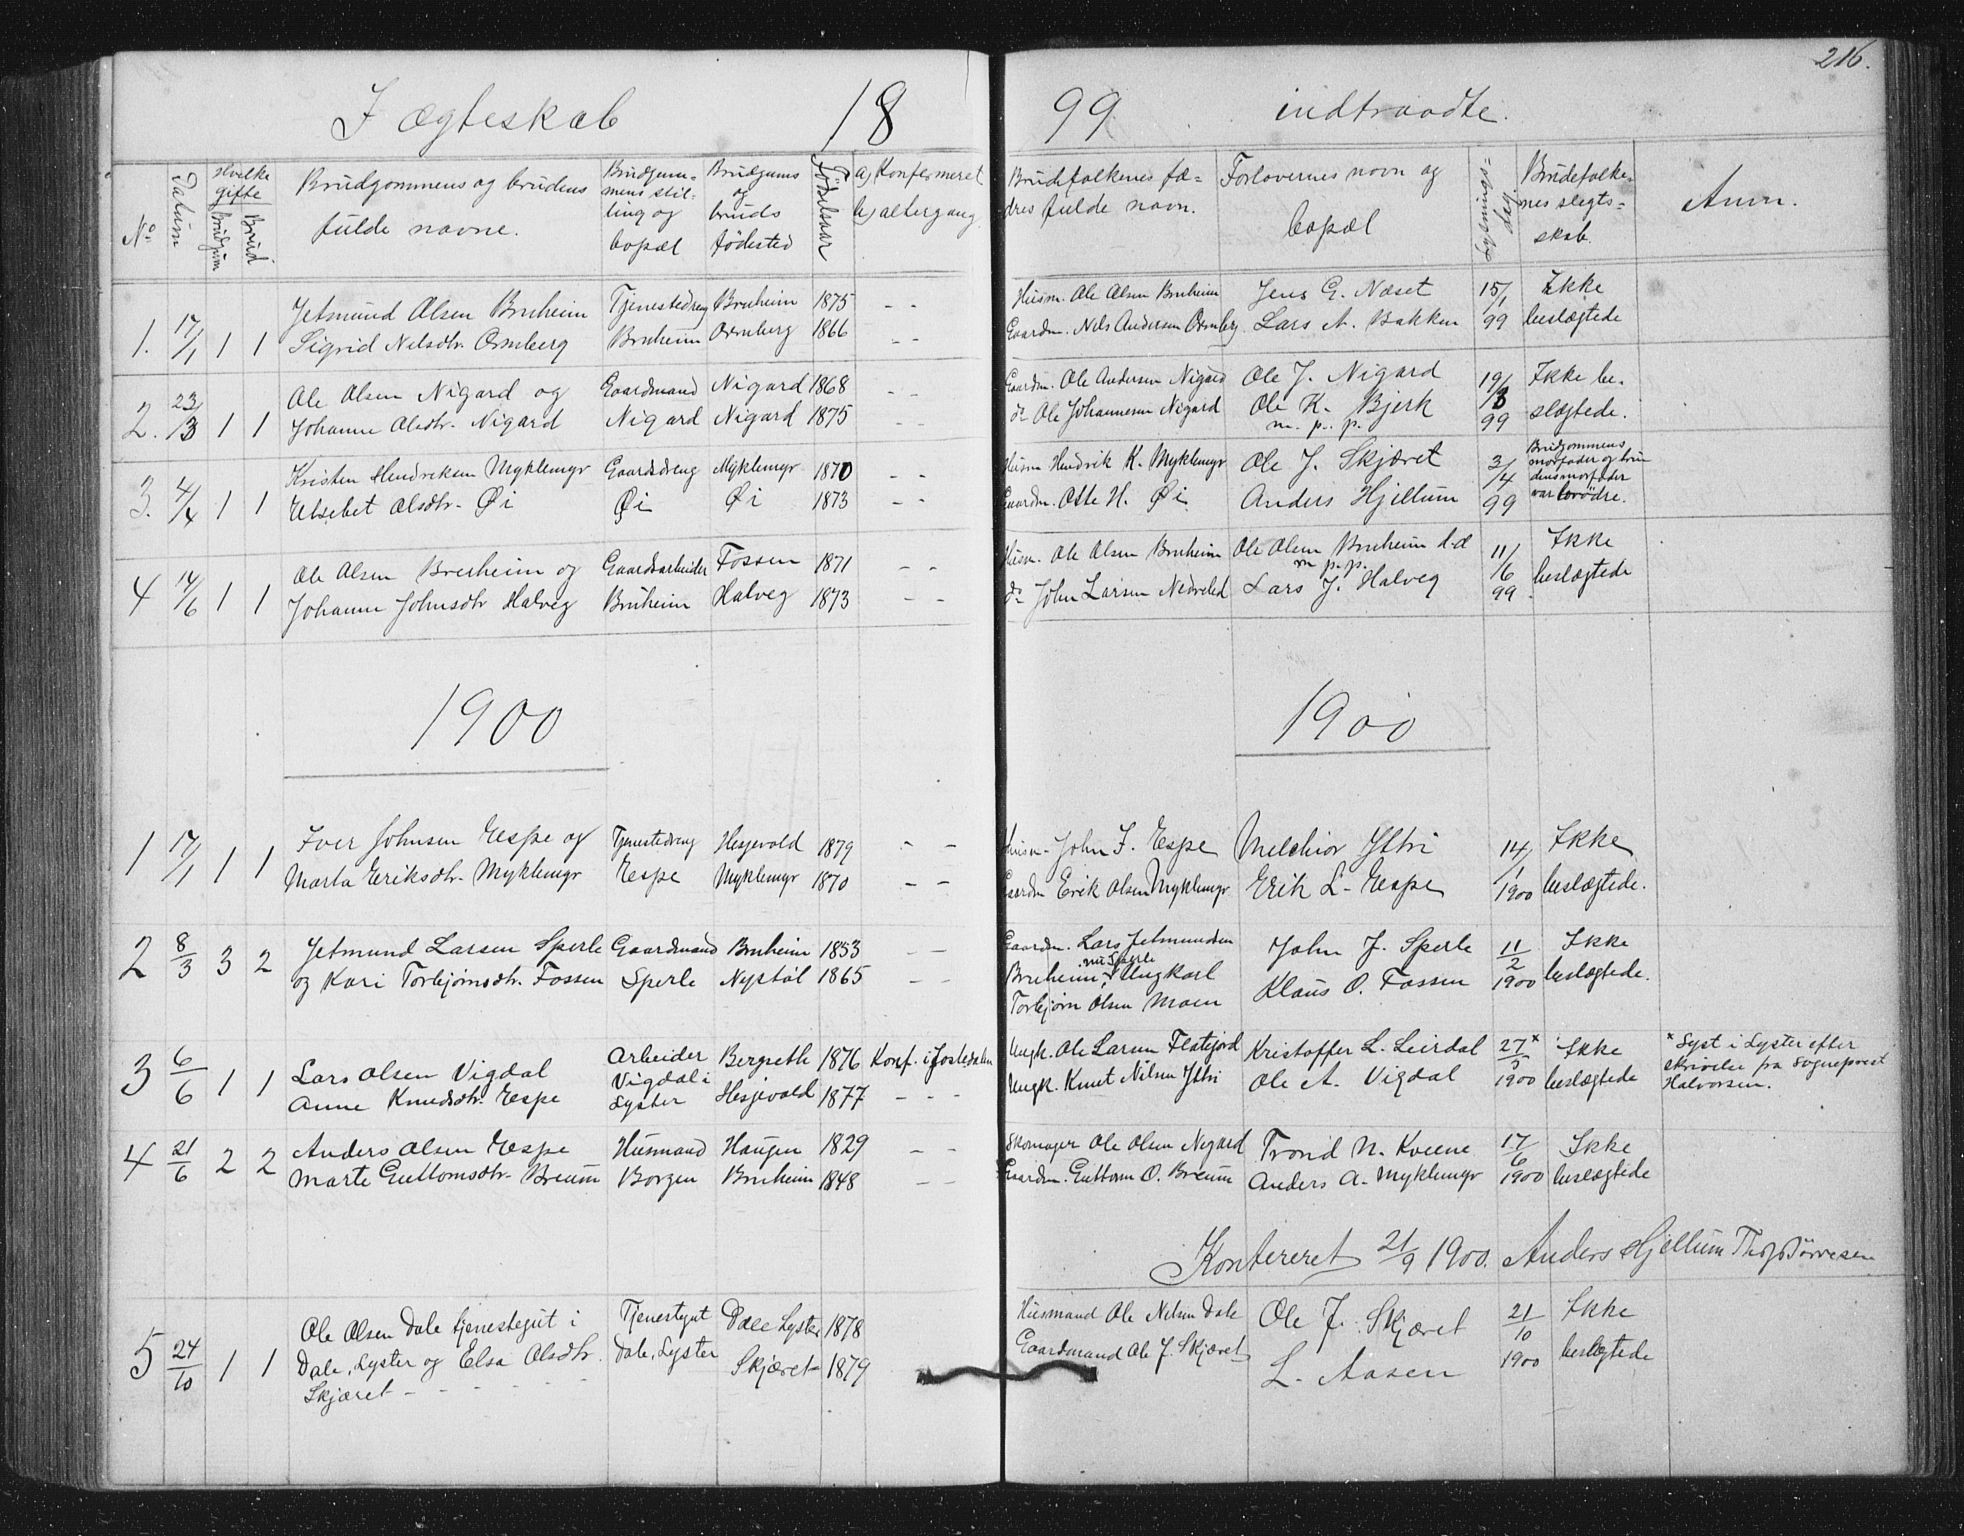 216.
I ægteskab 18 99 indtraadte.
No
Datum
Hvilke gifte
Brudgum
Brud
Brudgommens og brudens
fulde navne.
Brudgum-
mens stil-
ling og
bopæl
Brudgums
og
bruds
fødested
Fødselsaar
a) Konfirmeret
b) altergang
Brudefolkenes fæ-
dres fulde navn.
Forlovernes navn og
bopæl
Brudefolke-
nes slegts-
skab.
Anm.
1. 17/1 1 1
Jetmund Olsen Bruheim
Sigrid Nilsdtr. Ormberg
Tjenestedreng
Bruheim
Bruheim
Ormberg
1875
1866
- -
- -
Husm. Ole Olsen Bruheim
Gaardm. Nils Andersen Ormberg
Jens G. Næset
Lars A. Bakken
15/1
99
Ikke
beslægtede
2. 23/3 1 1
Ole Olsen Nigard og
Johanne Olsdtr. Nigard
Gaardmand
Nigard
Nigard
Nigard
1868
1875
- -
- -
Gaardm. Ole Andersen Nigard
do Ole Johannesen Nigard
Ole J. Nigard
Ole K. Bjerk
m. p. p.
19/3
99
Ikke be-
slægtede.
3. 4/4 1 1
Kristen Hendriksen Myklemyr
Elsebet Olsdtr. Øi
Gaardsdreng
Øi
Myklemyr
Øi
1870
1873
- -
- -
Husm Hendrik K. Myklemyr
Gaardm. Otte H. Øi
Ole J. Skjæret
Anders Hjellum
3/4
99
Brudgommens
morfader og bru
dens morfader
var brødre.
4 14/6 1 1
Ole Olsen Bruheim og
Johanne Johnsdtr Halveg
Gaardsarbeider
Bruheim
Fossen
Halveg
1871
1873
- -
- -
Husm. Ole Olsen Bruheim
do John Larsen Nedrelid
Ole Olsen Bruheim
m. p. p.
Lars J. Halveg
11/6
99.
Ikke
beslægtede
1900 1900
1 17/1 1 1
Iver Johnsen Espe og
Marta Eriksdtr. Myklemyr
Tjenestedreng
Espe
Hesjevold
Myklemyr
1879
1870
- -
- -
Husm. John I. Espe
Gaardm Erik Olsen Myklemyr
Melchior Ytri
Erik L. Espe
14/1
1900
Ikke
beslægtede.
2 8/3 3 2
Jetmund Larsen Sperle
og Kari Torbjørnsdtr. Fossen
Gaardmand
Sperle
Bruheim
Nystøl
1853
1865
- -
- -
Gaardm. Lars Jetmundsen
nu Sperle
Bruheim, Ungkarl
Torbjørn Olsen Moen
John J. Sperle
Klaus O. Fossen
11/2
1900
Ikke
beslægtede.
3 6/6 1 1
Lars Olsen Vigdal
Anne Knudsdtr. Espe
Arbeider
Vigdal i
Lyster
Bergseth
Hesjevold
1876
1877
Konf. i Jostedalen
- - -
Ungk. Ole Larsen Flatejord
Ungk. Knut Nilsen Ytri
Kristoffer L. Leirdal
Ole A. Vigdal
27*/5
1900
Ikke
beslægtede
* Lyst i Lyster efter
skrivelse fra Sogneprest
Halvorsen.
4 21/6 2 2
Anders Olsen Espe
Marte Guttomsdtr. Breum
Husmand
Borgen
Haugen
Bruheim
1829
1848
- -
- -
Skomager Ole Olsen Negard
Gaardm. Guttorm O. Breum
Trond N. Kveene
Anders A. Myklemyr
17/6
1900
Ikke
beslægtede
Konfereret 21/9 1900. Anders Hjellum
5 24/10 1 1
Ole Olsen Dale tjenestegut i
Dale, Lyster og Elsa Olsdtr.
Skjæret - - - - -
Tjenestegut
Dale, Lyster
Dale Lyster
Skjæret
1878
1879
Husmand Ole Nilsen Dale
Gaardmand Ole J. Skjæret
Ole J. Skjæret
L. Aasen
21/10
1900
Ikke
beslegtede